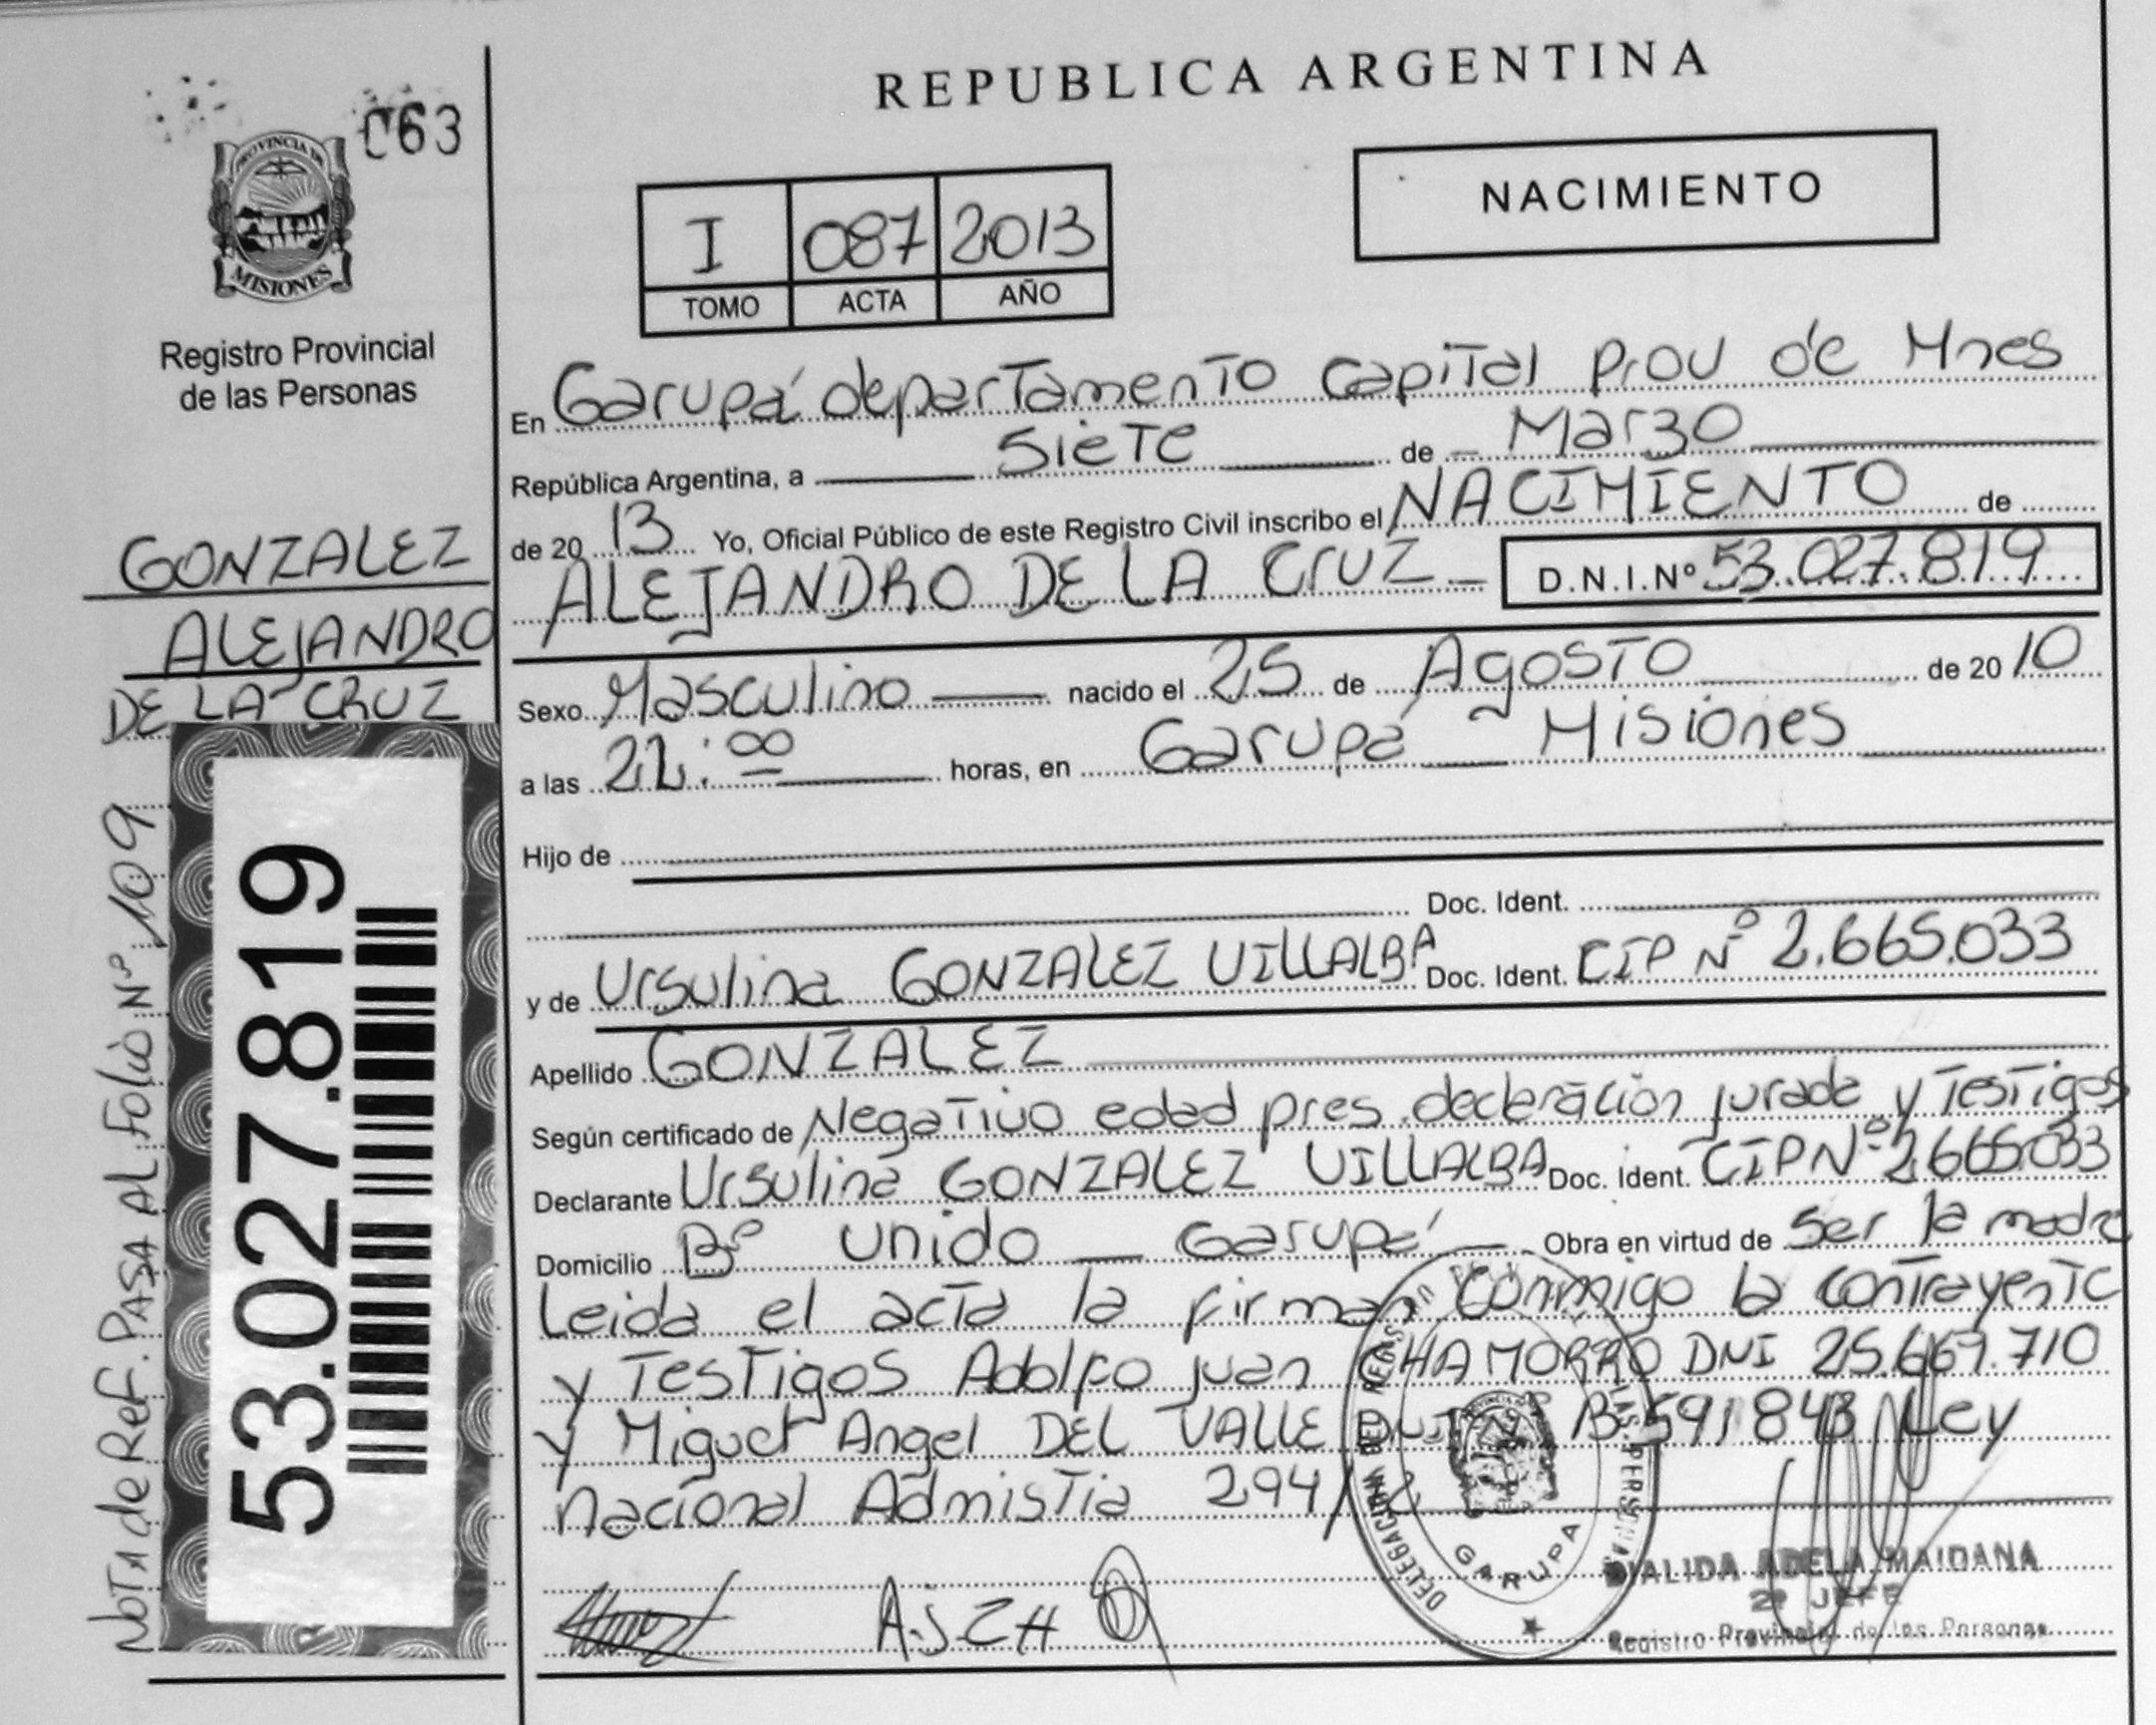 REPUBLICA ARGENTINA
C63
PROVINCIA DE
MISIONES
Registro Provincial
de las Personas
I 087 2013
TOMO ACTA AÑO
NACIMIENTO
GONZALEZ
ALEJANDRO
DE LA CRUZ
53.027.819
NOTA de Ref. PASA AL Folio Nº 109
En Garupá departamento Capital Prov de Mnes
República Argentina, a siete de Marzo
de 20 13 Yo, Oficial Público de este Registro Civil inscribo el NACIMIENTO de
ALEJANDRO DE LA CruZ D.N.I.Nº 53.027.819
Sexo Masculino nacido el 25 de Agosto de 20 10
a las horas, en Garupá Misiones
Hijo de
Doc. Ident.
y de Ursulina GONZALEZ VILLALBA Doc. Ident. CIP Nº 2.665.033
Apellido GONZALEZ
Según certificado de Negativo edad pres. declaración jurada y Testigos
Declarante Ursulina GONZALEZ VILLALBA Doc. Ident. CIP Nº 2.665.033
Domicilio Bº Unido Garupá Obra en virtud de ser la madre
Leida el acta la firman conmigo la contrayente
y Testigos Adolfo Juan CHAMORRO DNI 25.667.710
y Miguel Angel DEL VALLE DNI Ley
nacional Admistia 294/
A.J.CH
DELEGACION GARUPA
DIALIDA ADELA MAIDANA
2º JEFE
Registro Provincial de las Personas